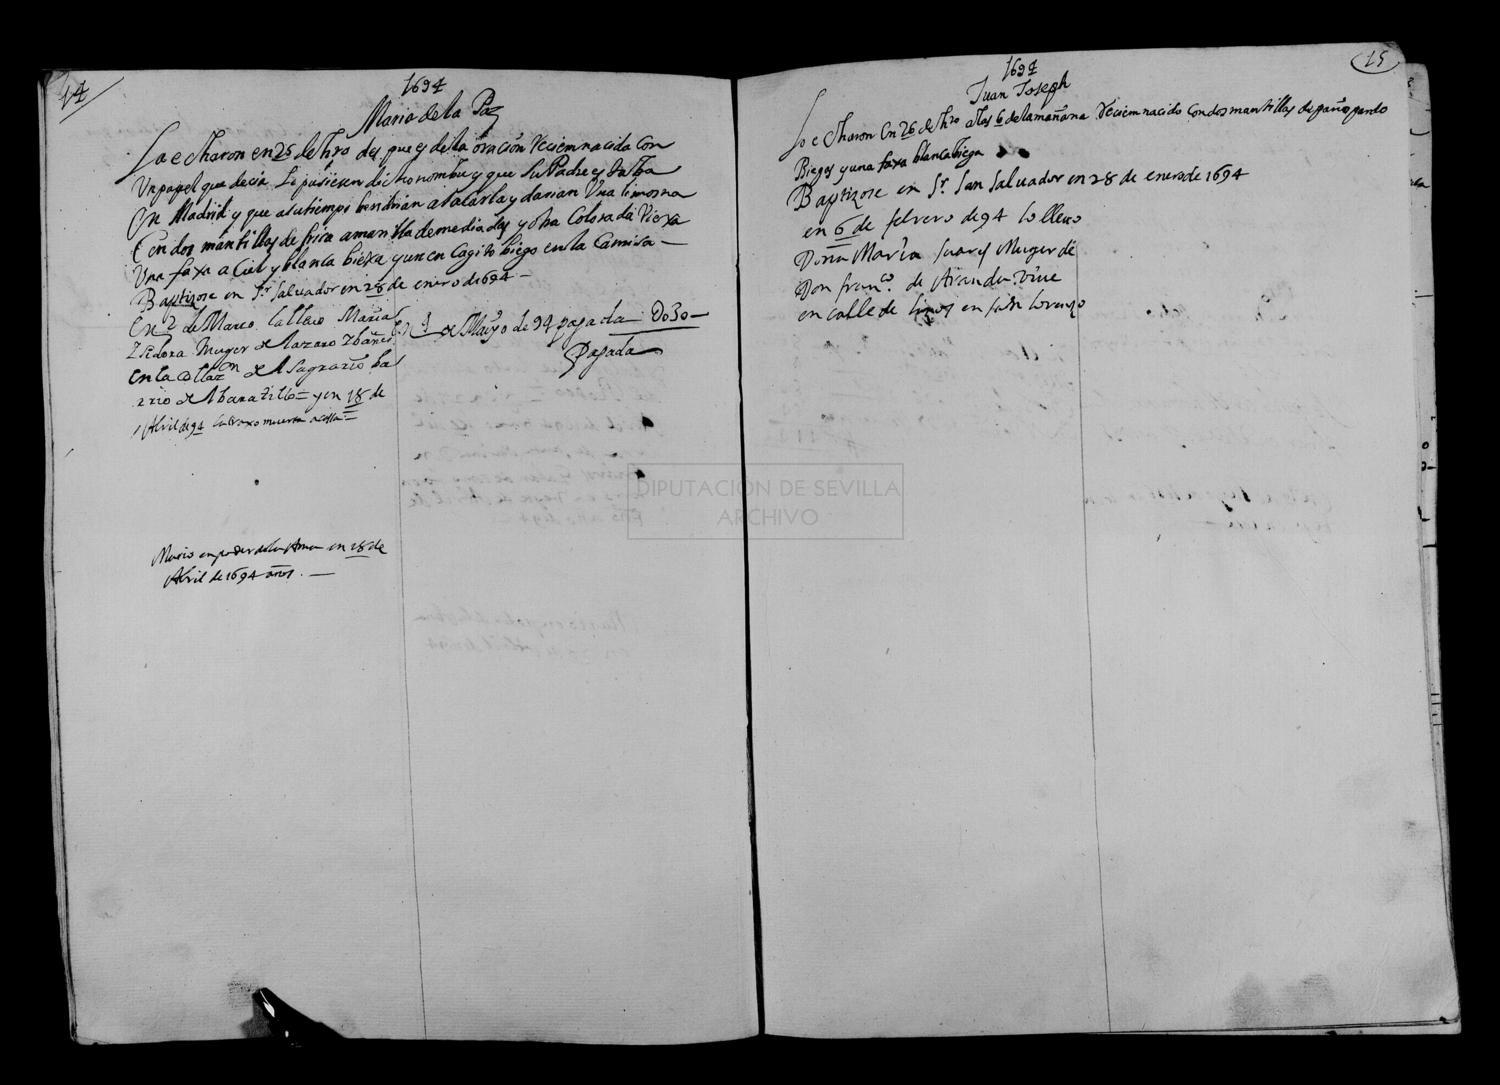 14
1694
Maria de la Paz
Lo echaron en 25 de Hro despues de la oracion Reciennacida con
Un papel que decia Le pusiesen dicho nombre y que su Padre estaba
En Madrid y que a su tiempo bendrian a sacarla y darian Una limosna
Con dos mantillas de frisa amarilla de mediadas y otra Colorada Viexa
Una faxa a Ciel y blanca biexa y un en Cagito biego en la Camisa
Baptizose en Sr Salvador en 28 de enero de 1694
En 2 de Marco la llevo Maria
Isidora Muger de Lazaro Ybañes
en la collazon de el Sagrario ba
rrio de Abaratillo y en 18 de
Abril de 94 la traxo muerta a cassa
En 1 de Mayo de 94 pagada Do30
Pagada
Murio en poder de la Ama en 18 de
Abril de 1694 años.
15
1694
Juan Joseph
Lo echaron En 26 de Hro a las 6 de la mañana Reciennacido con dos mantillas de paño pardo
Biegas y una faxa blanca biega
Baptizose en Sr San Salvador en 28 de enero de 1694
en 6 de febrero de 94 lo llevo
Doña Maria Suares Muger de
Don franco de Aranda vive
en calle de Linos en San Lorenzo
DIPUTACION DE SEVILLA
ARCHIVO